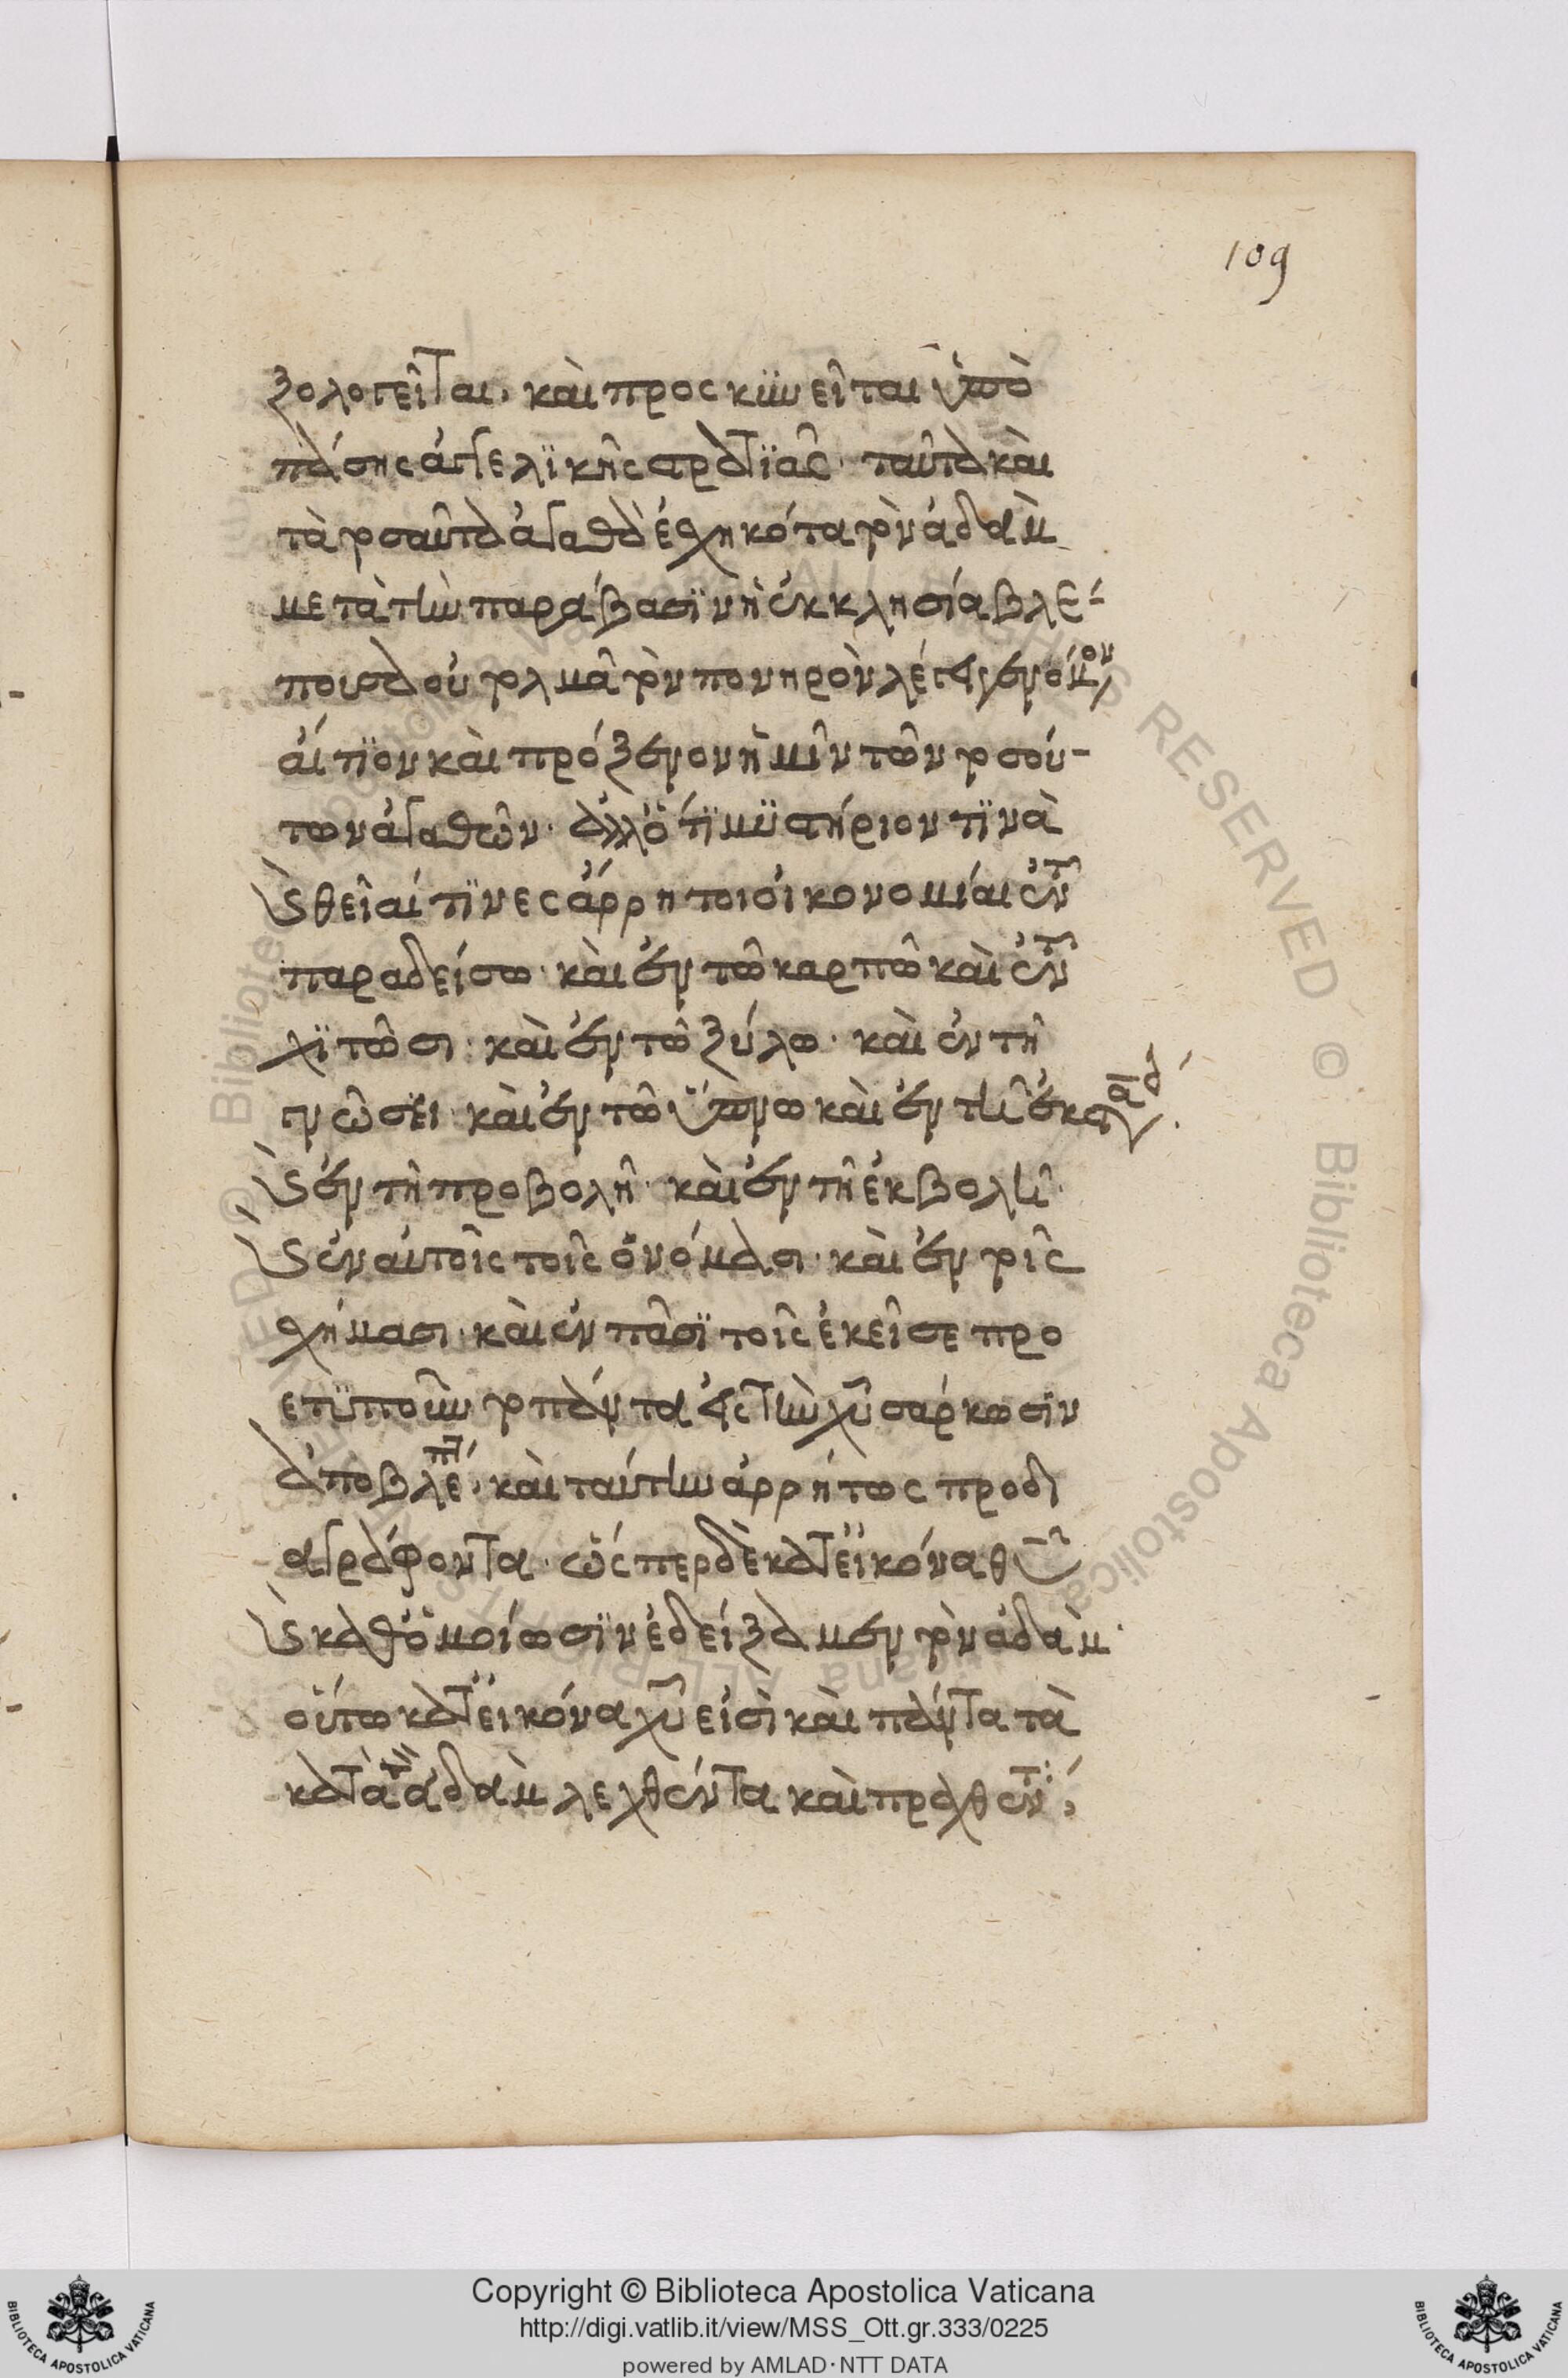 109
ξολογεῖται, καὶ προσκϋνεῖται ὑπὸ
πάσης ἀγγελϊκῆς στρατϊᾶς· ταῦτα καὶ
τὰ τοσαῦτα ἀγαθὰ ἐσχηκότα τὸν ἀδὰμ
μετὰ τὴν παράβασϊν ἡ ἐκκλησία βλέ-
πουσα οὐ τολμᾶ τὸν πονηρὸν λέγειν γενόμενον
αἴτϊον καὶ πρόξενον ἡμῖν τῶν τοσού-
των ἀγαθῶν· ἀλλ' ὅτϊ μϋστήριον τϊνὰ
καὶ θεῖαί τϊνες ἄρρητοι οἰκονομίαι ἐν τῶ
παραδείσω· καὶ ἐν τῶ καρπῶ καὶ ἐν τῶ
χϊτῶσι· καὶ ἐν τῶ ξύλω· καὶ ἐν τῆ
γνώσει· καὶ ἐν τῶ ὕπνω καὶ ἐν τῆ
καὶ ἐν τῆ προβολῆ· καὶ ἐν τῆ ἐκβολῆ·
καὶ ἐν αὐτοῖς τοῖς ὀνόμασι· καὶ ἐν τοῖς
σχήμασι· καὶ ἐν πᾶσϊ τοῖς ἐκεῖσε προ
ετϋποῦντο πάντα εἰς τὴν χυ σαρκωσϊν
ἀποβλέποντα, καὶ ταύτην ἀρρήτως προδι
αγράφοντα· ὥσπερ δὲ κατ' εἰκόνα θυ
καὶ καθ' ὁμοίωσϊν ἐδείξαμεν τὸν ἀδάμ·
οὕτω κατ' εἰκόνα χυ εἰσὶ καὶ πάντα τὰ
κατὰ τὸν ἀδὰμ λεχθέντα καὶ πραχθέντα,
Copyright © Biblioteca Apostolica Vaticana
http://digi.vatlib.it/view/MSS_Ott.gr.333/0225
powered by AMLAD·NTT DATA
BIBLIOTECA APOSTOLICA VATICANA
BIBLIOTECA APOSTOLICA VATICANA